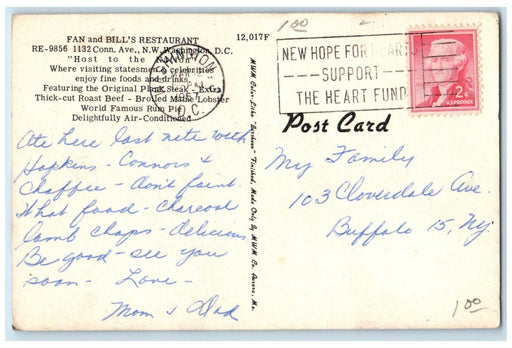 FAN and BILL'S RESTAURANT
RE-9856 1132 Conn. Ave., N.W. Washington, D.C.
"Host to the Nation"
Where visiting statesmen, celebrities
enjoy fine foods and drinks.
Featuring the Original Plank Steak - Extra
Thick-cut Roast Beef - Broiled Maine Lobster
World Famous Rum Pie
Delightfully Air-Conditioned
12,017F
WASHINGTON
1957
D.C.
1 00
NEW HOPE FOR HEARTS
SUPPORT
THE HEART FUND
2¢
U.S. POSTAGE
Post Card
Ate here last nite with
Hopkins - Connors &
Chaffee - don't faint.
What food - charcoal
lamb chops - delicious.
Be good - see you
soon - Love -
Mom & Dad
MWM Color-Litho Finished, Made Only By MWM Co. Aurora, Mo.
My Family
103 Cloverdale Ave.
Buffalo 15, NY.
1 00